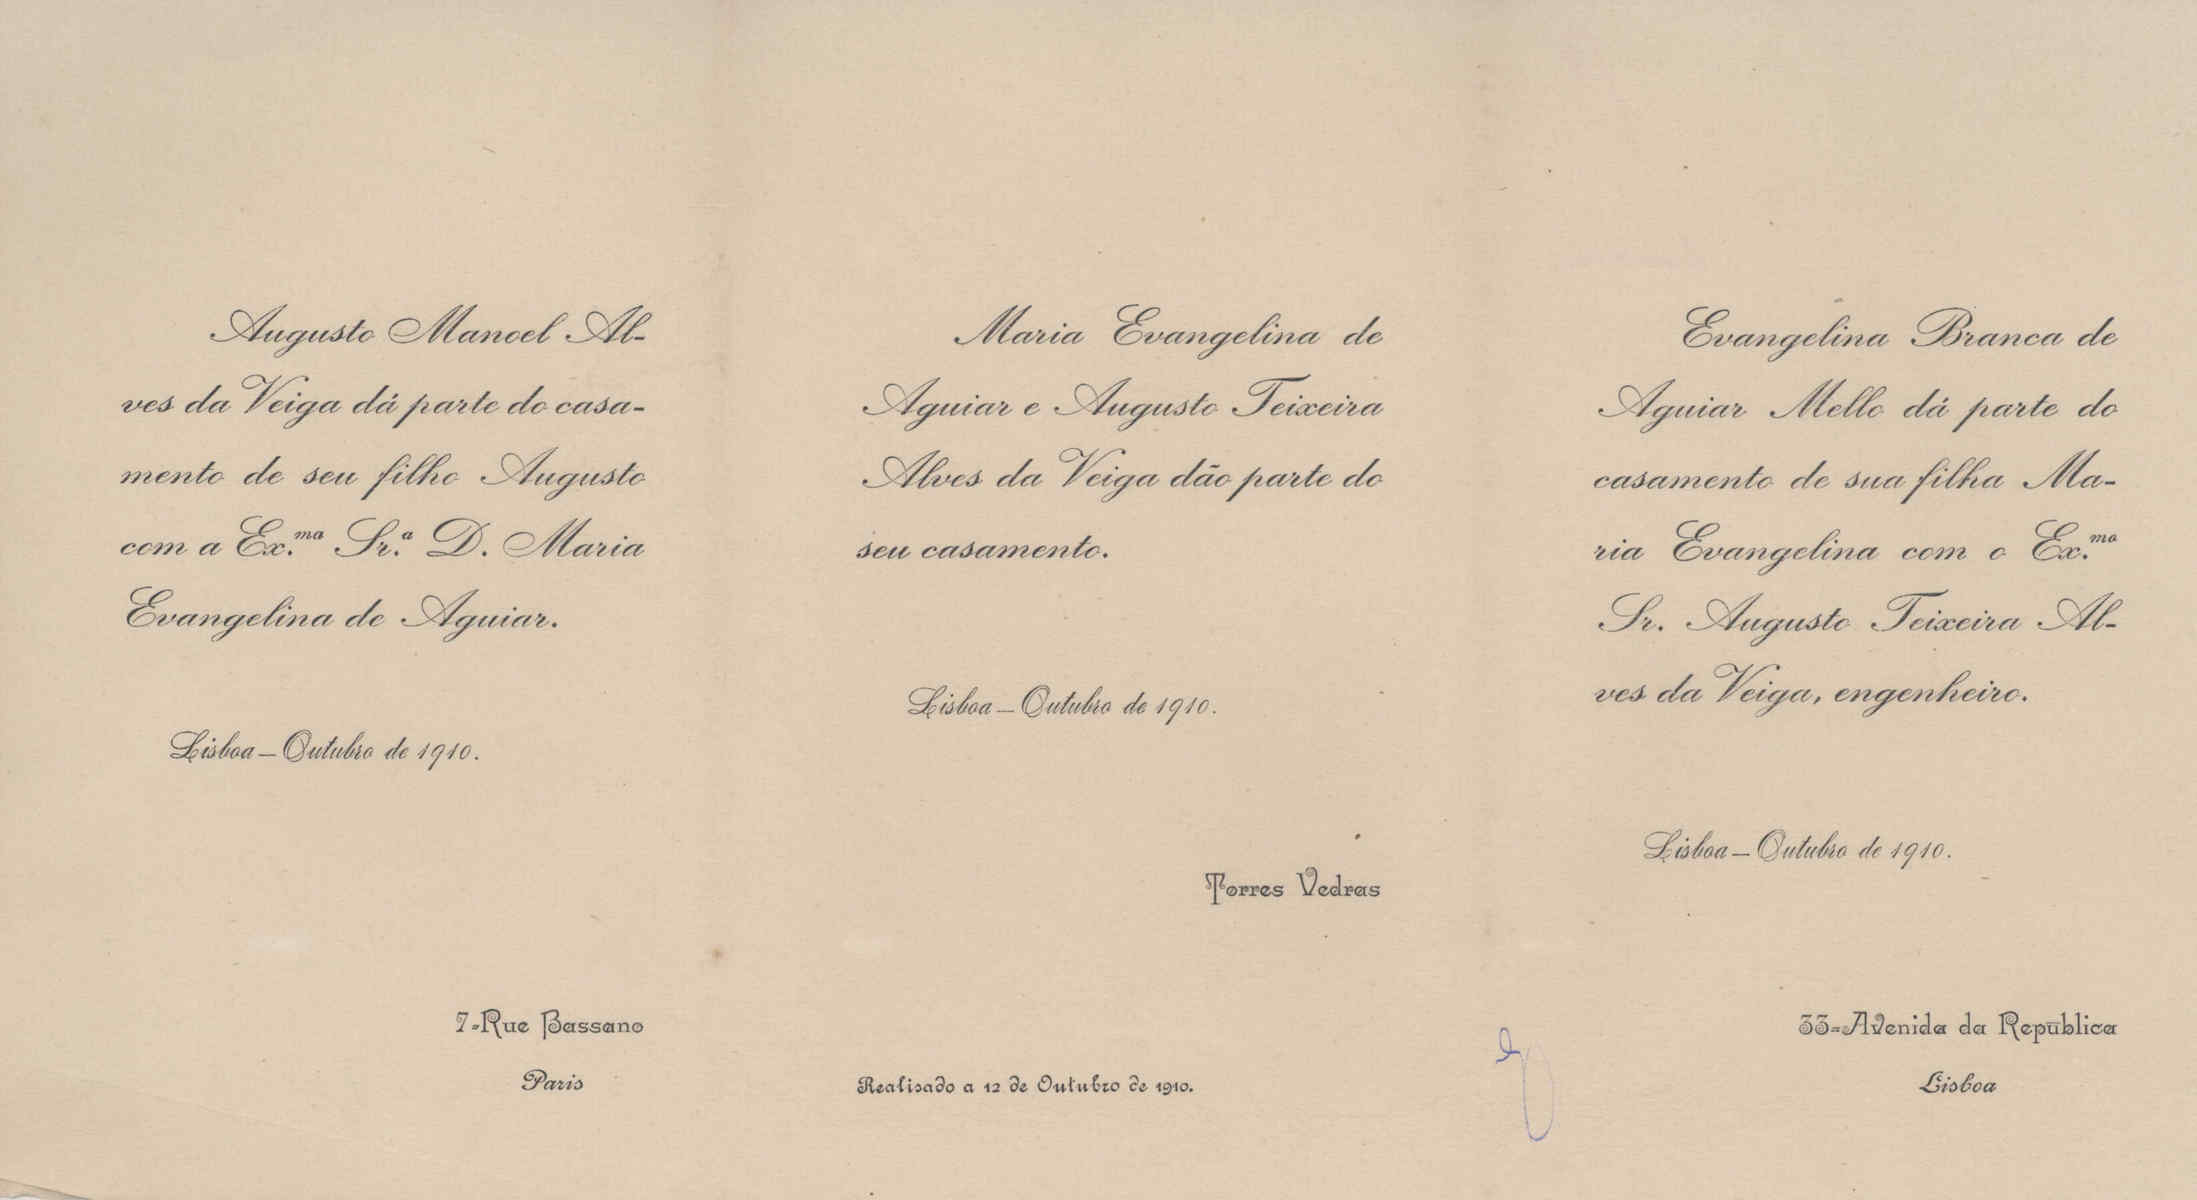 Augusto Manoel Al-
ves da Veiga dá parte do casa-
mento de seu filho Augusto
com a Ex.ma Sr.a D. Maria
Evangelina de Aguiar.
Lisboa — Outubro de 1910.
7-Rue Bassano
Paris
Maria Evangelina de
Aguiar e Augusto Teixeira
Alves da Veiga dão parte do
seu casamento.
Lisboa — Outubro de 1910.
Torres Vedras
Realisado a 12 de Outubro de 1910.
Evangelina Branca de
Aguiar Mello dá parte do
casamento de sua filha Ma-
ria Evangelina com o Ex.mo
Sr. Augusto Teixeira Al-
ves da Veiga, engenheiro.
Lisboa — Outubro de 1910.
33=Avenida da República
Lisboa